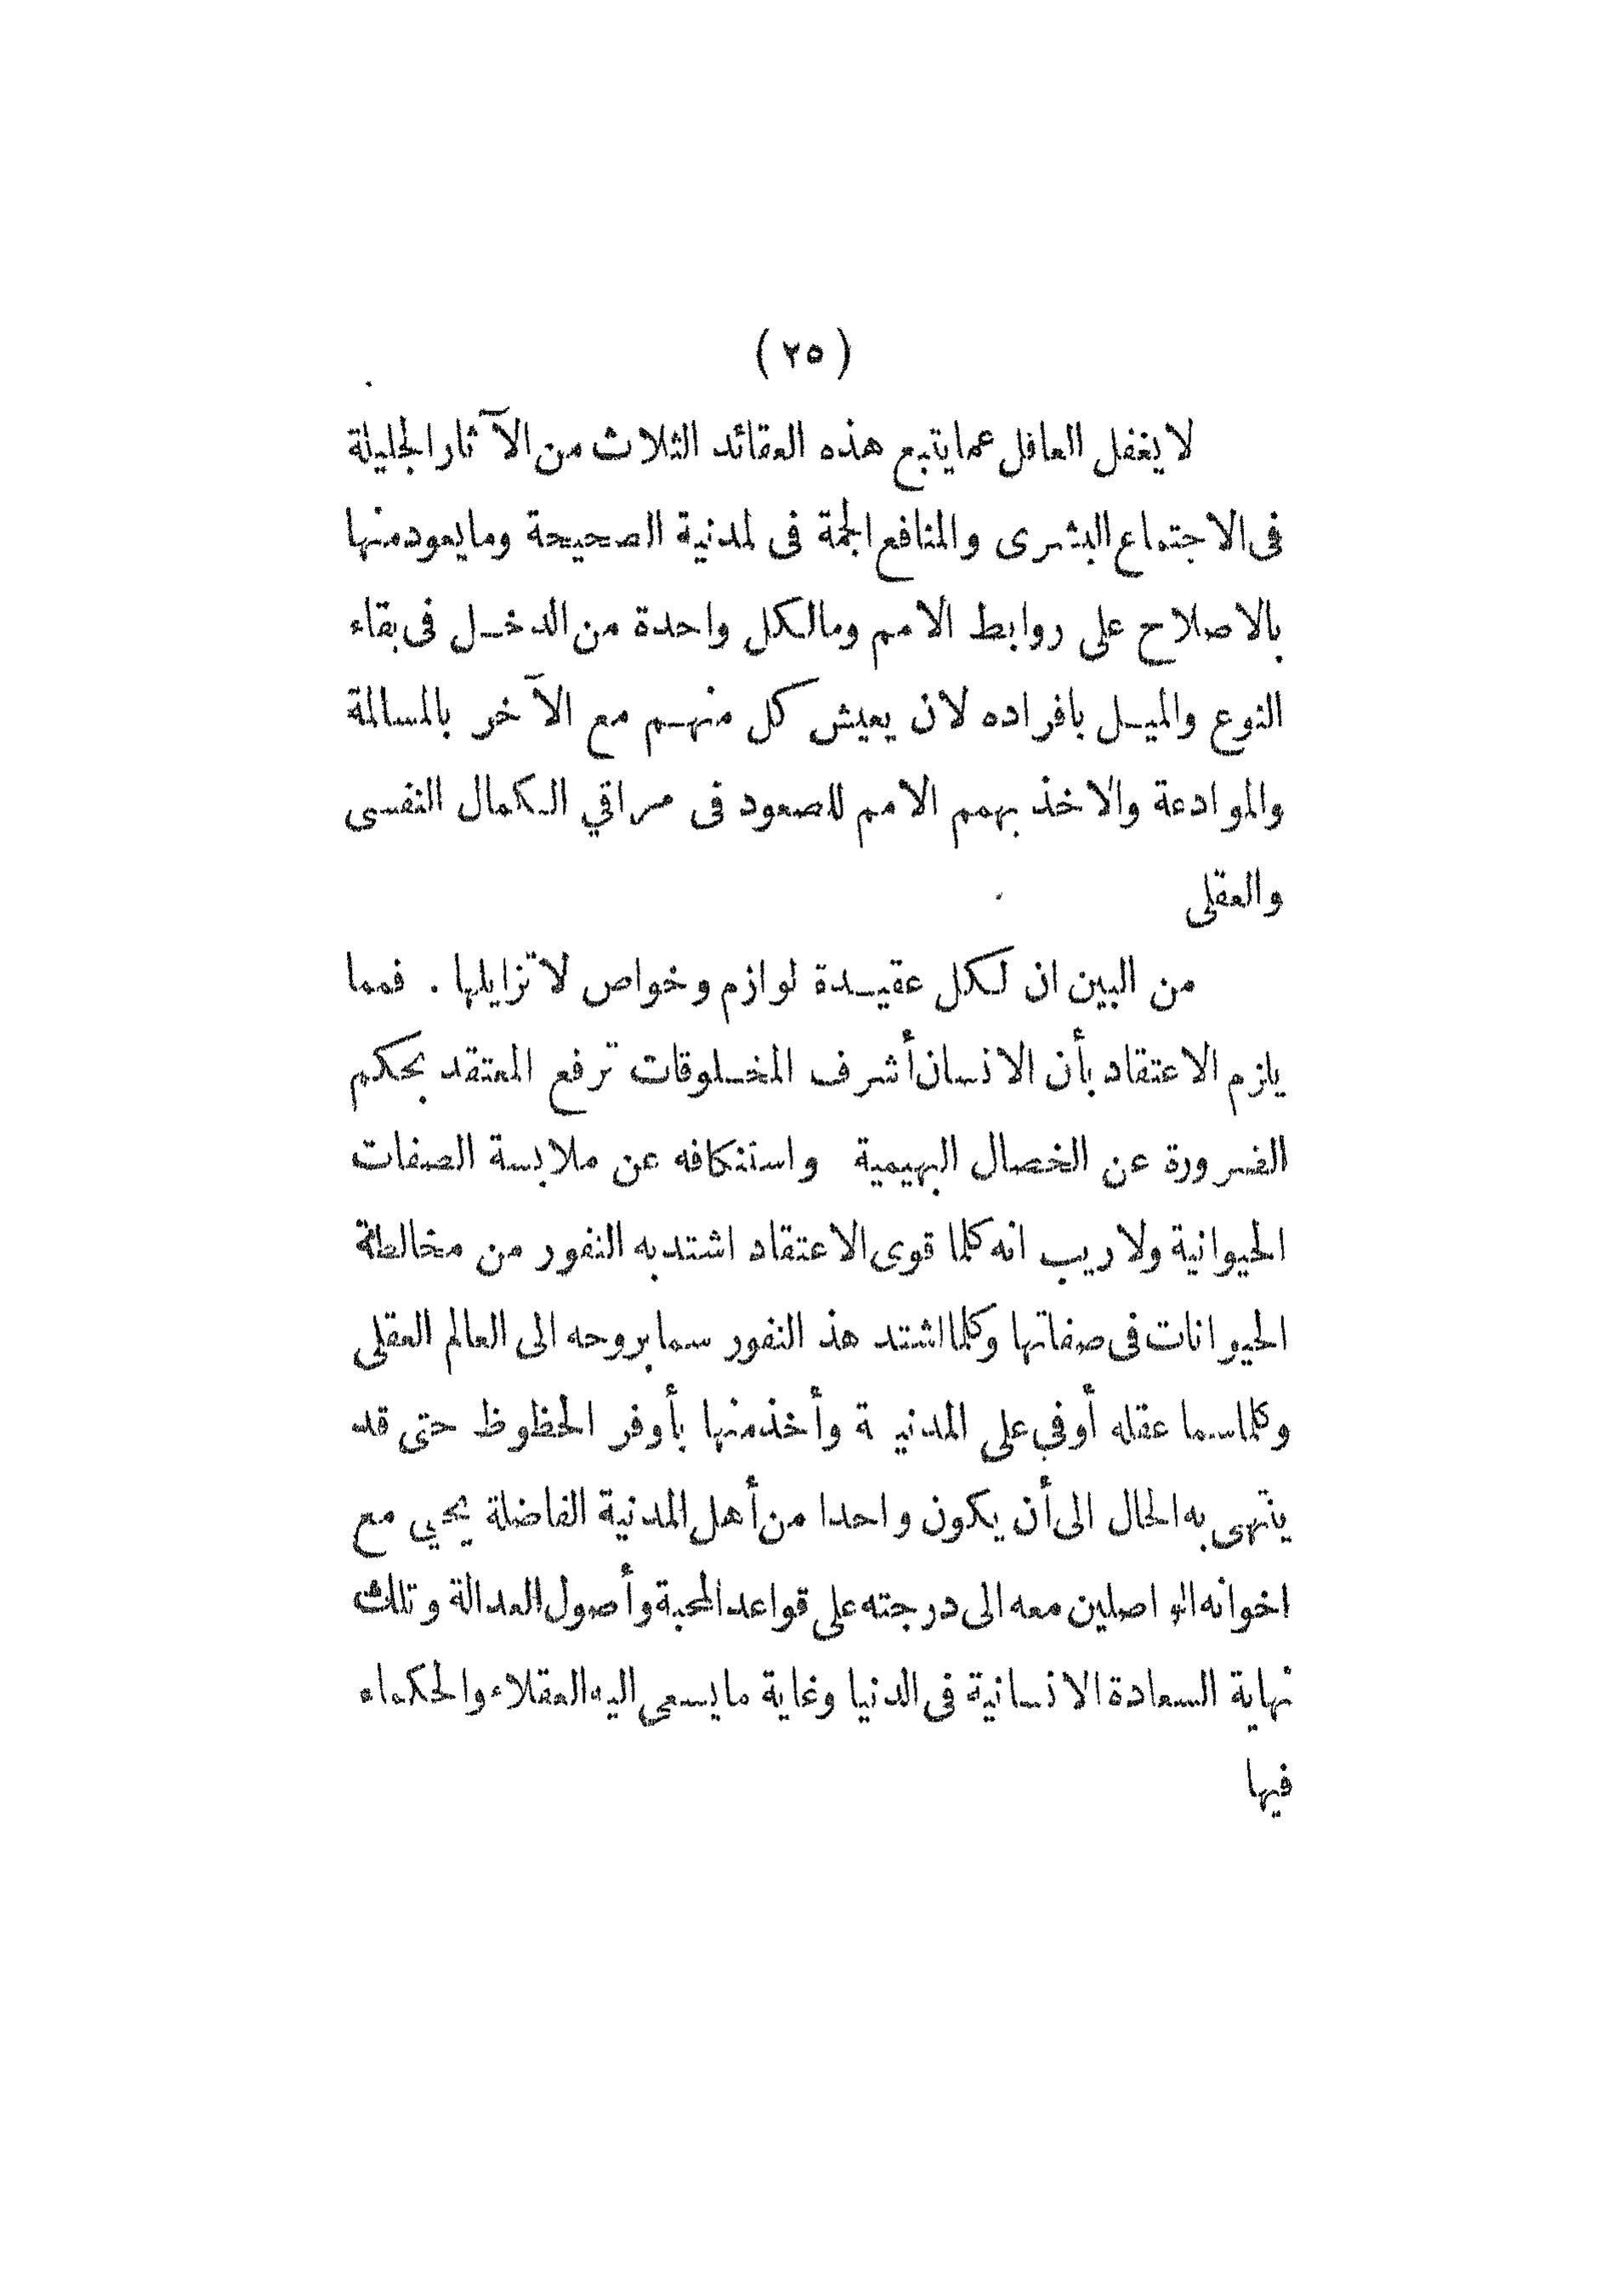 (٢٥)
لا يغفل العاقل عما يتبع هذه العقائد الثلاث من الآثار الجليلة
فى الاجتماع البشرى والمنافع الجمة فى لمدنية الصحيحة وما يعود منها
بالاصلاح على روابط الامم ومالكل واحدة من الدخل فى بقاء
النوع والميل بافراده لان يعيش كل منهم مع الآخر بالمسالمة
والموادعة والاخذ بهمم الامم للصعود فى مراقي الكمال النفسى
والعقلى
من البين ان لكل عقيدة لوازم وخواص لا تزايلها . فمما
يلزم الاعتقاد بأن الانسان أشرف المخلوقات ترفع المعتقد بحكم
الضرورة عن الخصال البهيمية واستنكافه عن ملابسة الصفات
الحيوانية ولا ريب انه كلما قوى الاعتقاد اشتد به النفور من مخالطة
الحيوانات فى صفاتها وكلما اشتد هذ النفور سما بروحه الى العالم العقلى
وكلما سما عقله أوفي على المدنية وأخذ منها بأوفر الحظوظ حتى قد
ينتهى به الحال الى أن يكون واحدا من أهل المدنية الفاضلة يحيي مع
اخوانه الواصلين معه الى درجته على قواعد المحبة وأصول العدالة وتلك
نهاية السعادة الانسانية فى الدنيا وغاية ما يسعى اليه العقلاء والحكماء
فيها